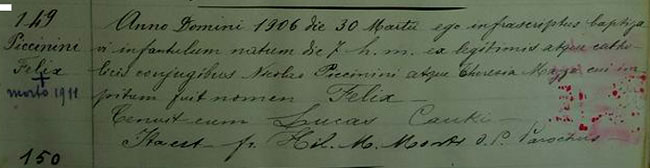 149
Piccinini
Felix
morto 1911
Anno Domini 1906 die 30 Martii ego infrascriptus baptiza
vi infantulum natum die 7 h. m. ex legitimis atque catho
licis conjugibus Nicolao Piccinini atque Theresia Mazza cui im
positum fuit nomen Felix
Tenuit eum Lucas
Ita est fr. Hil. M. O. P. Parochus
150